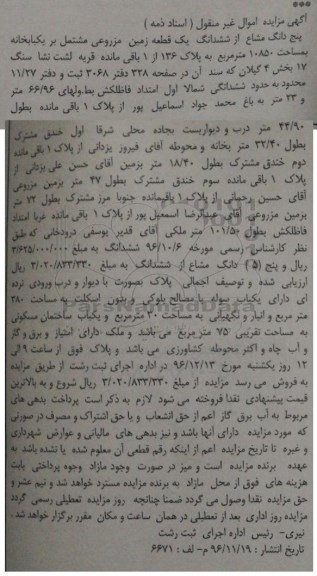 آگهی مزایده اموال غیر منقول ( اسناد ذمه )
پنج دانگ مشاع از ششدانگ یک قطعه زمین مزروعی مشتمل بر یکبابخانه
بمساحت ۱۰۸۵۰ مترمربع به پلاک ۱۳۶ از ۱ باقی مانده قریه لشت نشا سنگ
۱۷ بخش ۴ گیلان که سند آن در صفحه ۳۲۸ دفتر ۳۰۶۸ ثبت و دفتر ۱۱/۲۷
محدود به حدود ششدانگی شمالا اول امتداد فاظلکش بطولهای ۶۶/۹۶ متر
و ۲۳ متر به باغ محمد جواد اسماعیل پور از پلاک ۱ باقی مانده بطول
۴۴/۹۰ متر درب و دیواریست بجاده محلی شرقا اول خندق مشترک
بطول ۳۲/۴۰ متر بخانه و محوطه آقای فیروز یزدانی از پلاک ۱ باقی مانده
دوم خندق مشترک بطول ۱۸/۴۰ متر بزمین آقای حسن علی یزدانی از
پلاک ۱ باقی مانده سوم خندق مشترک بطول ۴۷ متر بزمین مزروعی
آقای حسین رحمانی از پلاک ۱ باقیمانده جنوبا مرز مشترک بطول ۷۳ متر
بزمین مزروعی آقای عبدالرضا اسمعیل پور از پلاک ۱ باقی مانده غربا امتداد
فاظلکش بطول ۱۰۱/۵۰ متر ملکی آقای قدیر یوسفی درودخانی که طبق
نظر کارشناس رسمی مورخه ۹۶/۱۰/۶ ششدانگ به مبلغ ۳/۶۲۵/۰۰۰/۰۰۰
ریال و پنج ( ۵ ) دانگ مشاع از ششدانگ به مبلغ ۳/۰۲۰/۸۳۳/۳۳۰ ریال
ارزیابی شده و توصیف اجمالی پلاک بصورت با دیوار و درب ورودی نرده
ای دارای یکباب سوله با مصالح بلوکی و بدون اسکلت به مساحت ۲۸۰
متر مربع و انبار و نگهبانی به مساحت ۲۰ مترمربع و یکباب ساختمان مسکونی
به مساحت تقریبی ۷۵ متر مربع می باشد و ملک دارای امتیاز و برق و گاز
و آب چاه و اکثر محوطه کشاورزی می باشد و پلاک فوق از ساعت ۹ الی
۱۲ روز یکشنبه مورخ ۹۶/۱۲/۱۳ در اداره اجرای ثبت رشت از طریق مزایده
به فروش می رسد مزایده از مبلغ ۳/۰۲۰/۸۳۳/۳۳۰ ریال شروع و به بالاترین
قیمت پیشنهادی نقدا فروخته می شود لازم به ذکر است پرداخت بدهی های
مربوط به آب برق گاز اعم از حق انشعاب و یا حق اشتراک و مصرف در صورتی
که مورد مزایده دارای آنها باشد و نیز بدهی های مالیاتی و عوارض شهرداری
و غیره تا تاریخ مزایده اعم از اینکه رقم قطعی آن معلوم شده یا نشده باشد به
عهده برنده مزایده است و میز در صورت وجود مازاد وجوه پرداختی بابت
هزینه های فوق از محل مازاد به برنده مزایده مسترد خواهد شد و نیم عشر و
حق مزایده نقدا وصول می گردد ضمنا چنانچه روز مزایده تعطیلی رسمی گردد
مزایده روز اداری بعد از تعطیلی در همان ساعت و مکان مقرر برگزار خواهد شد .
نیری- رئیس اداره اجرای ثبت رشت
تاریخ انتشار : ۹۶/۱۱/۱۹ م- لف : ۶۶۷۱